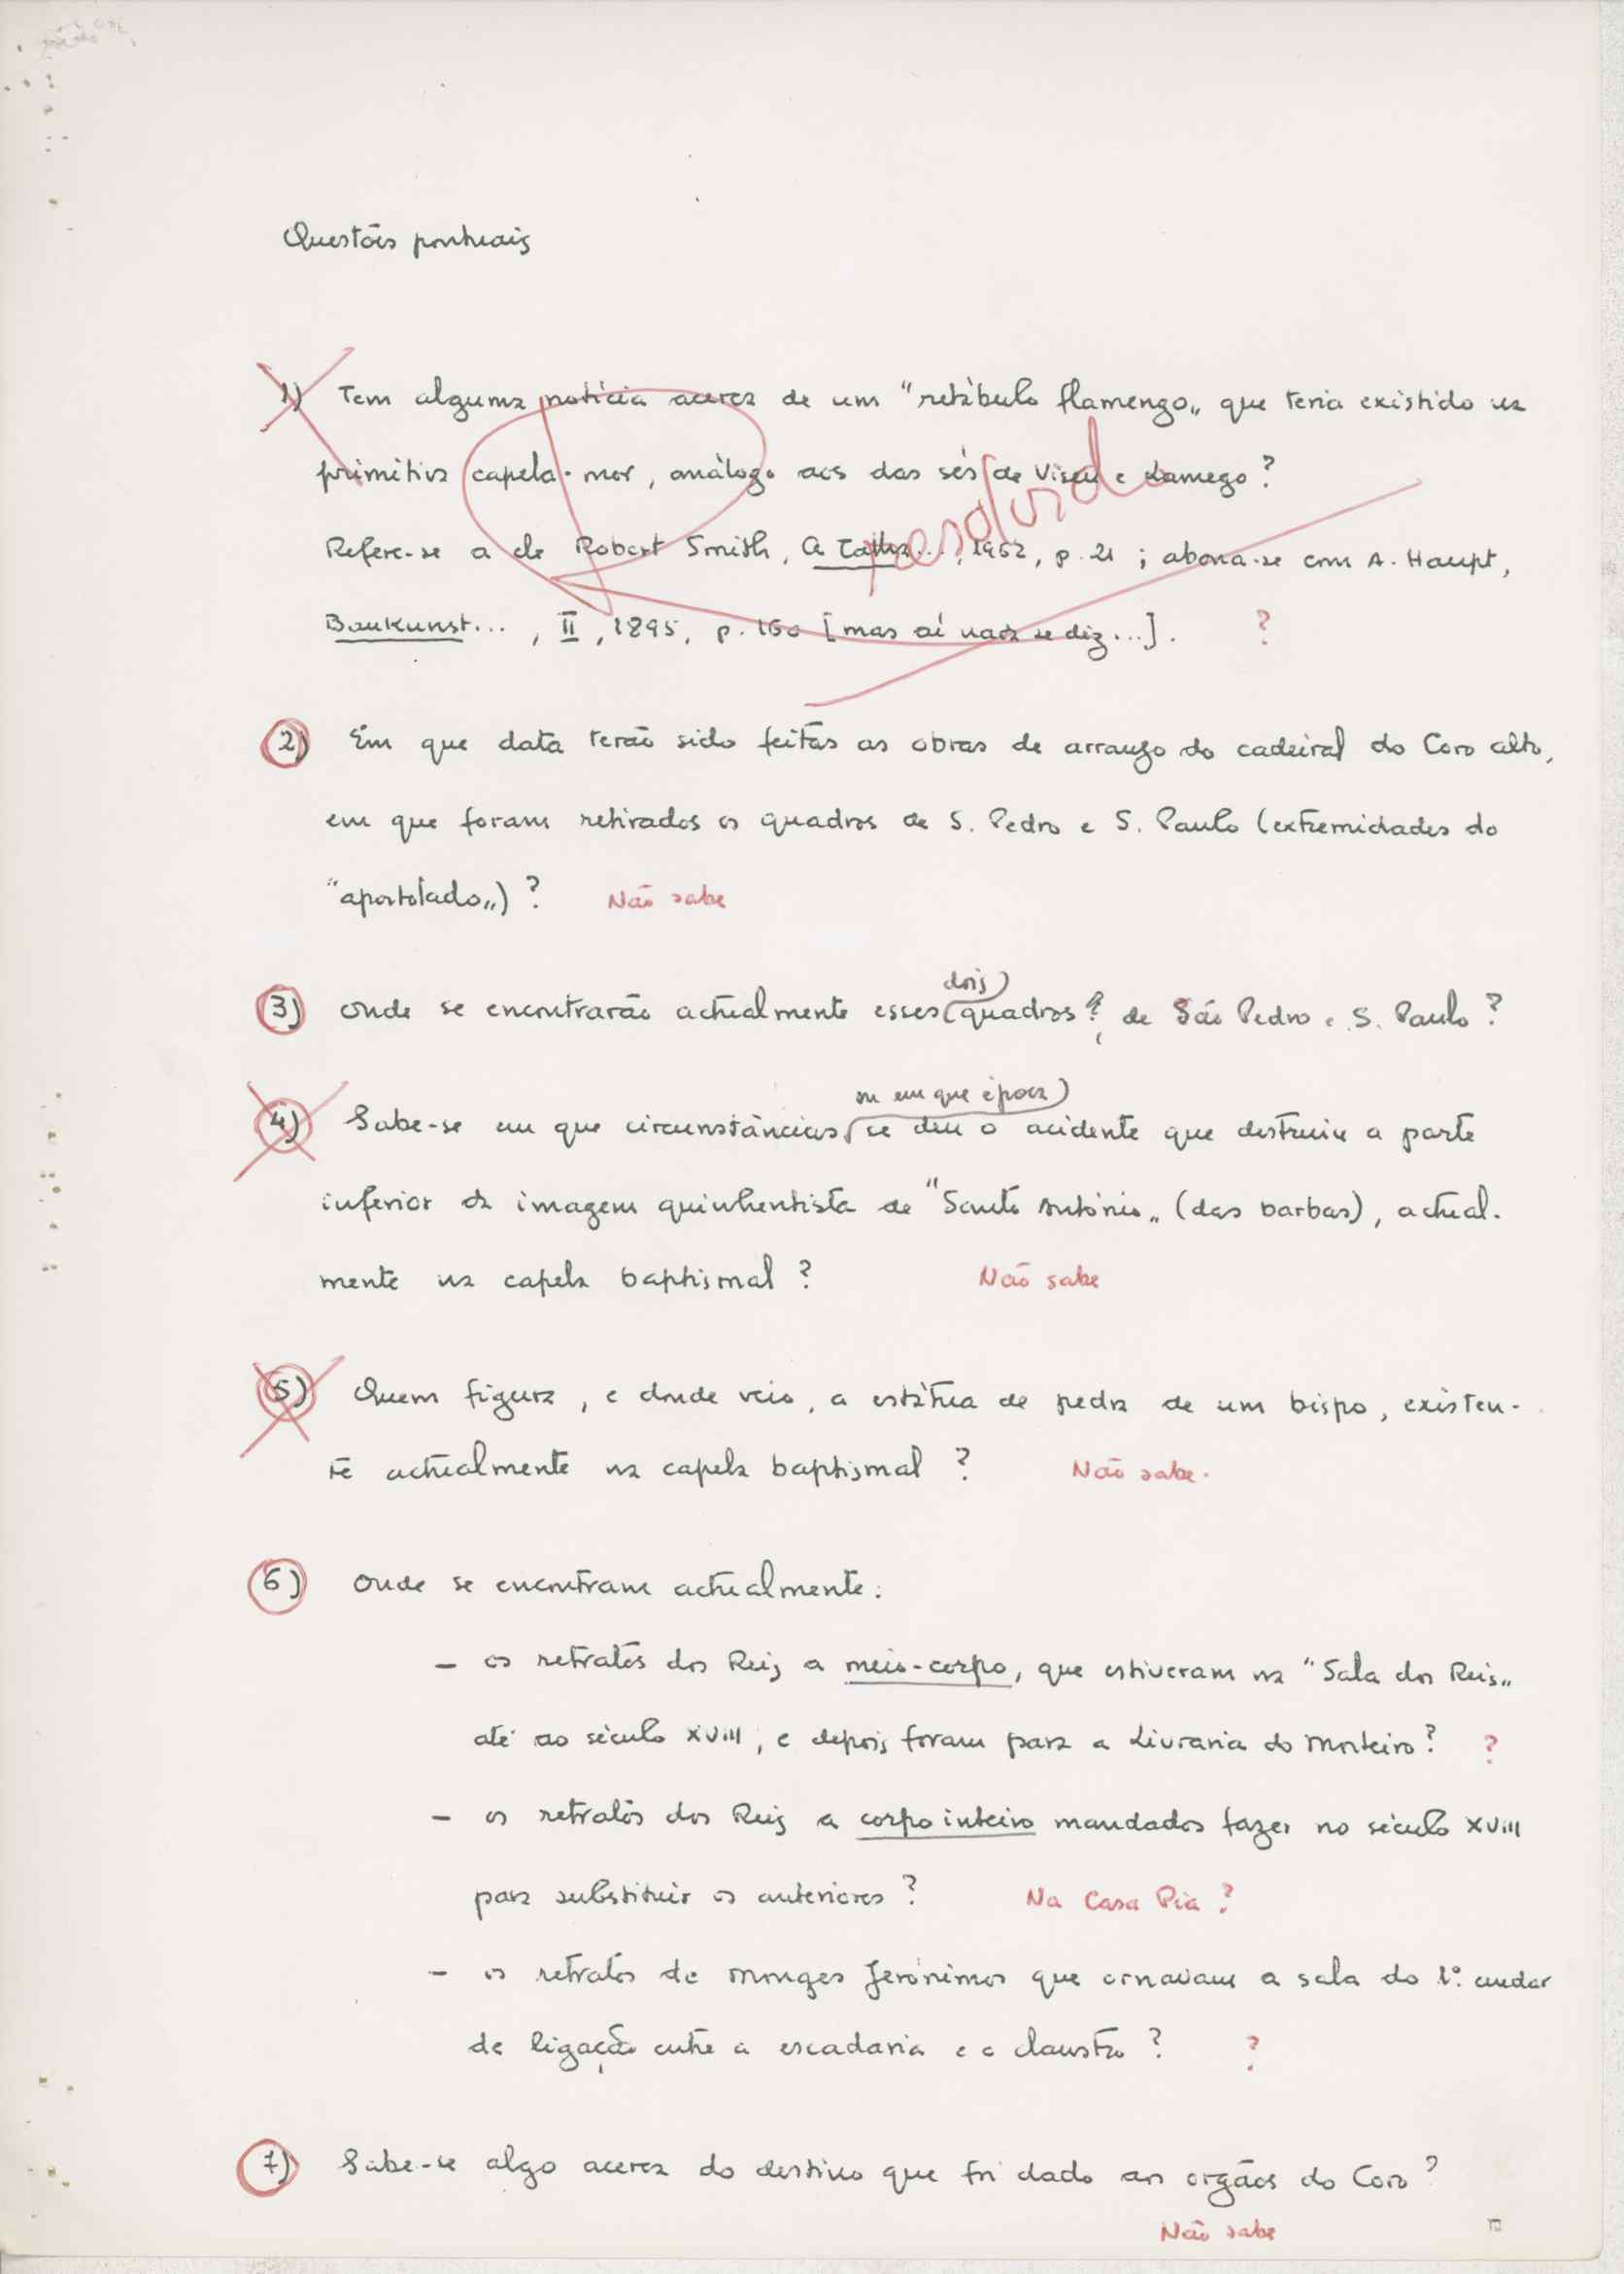 Questões pontuais
1) Tem alguma notícia acerca de um "retábulo flamengo„ que teria existido na
primitiva capela-mor, análogo aos das sés de Viseu e Lamego?
resolvido
Refere-se a ele Robert Smith, A Talha..., 1962, p. 21 ; abona-se com A. Haupt,
Baukunst..., II, 1895, p. 160 [mas aí nada se diz...]. ?
2) Em que data terão sido feitas as obras de arranjo do cadeiral do Coro alto,
em que foram retirados os quadros de S. Pedro e S. Paulo (extremidades do
"apostolado„) ? Não sabe
dois
3) Onde se encontrarão actualmente esses quadros?, de São Pedro e S. Paulo ?
ou em que época
4) Sabe-se em que circunstâncias se deu o acidente que destruiu a parte
inferior da imagem quinhentista de "Santo António„ (das barbas), actual-
mente na capela baptismal ? Não sabe
5) Quem figura, e donde veio, a estátua de pedra de um bispo, existen-
te actualmente na capela baptismal ? Não sabe.
6) Onde se encontram actualmente:
– os retratos dos Reis a meio-corpo, que estiveram na "Sala dos Reis„
até ao século XVIII, e depois foram para a Livraria do Mosteiro? ?
– os retratos dos Reis a corpo inteiro mandados fazer no século XVIII
para substituir os anteriores ? Na Casa Pia ?
– os retratos de monges Jerónimos que ornavam a sala do 1º. andar
de ligação entre a escadaria e o claustro ? ?
7) Sabe-se algo acerca do destino que foi dado aos orgãos do Coro ?
Não sabe